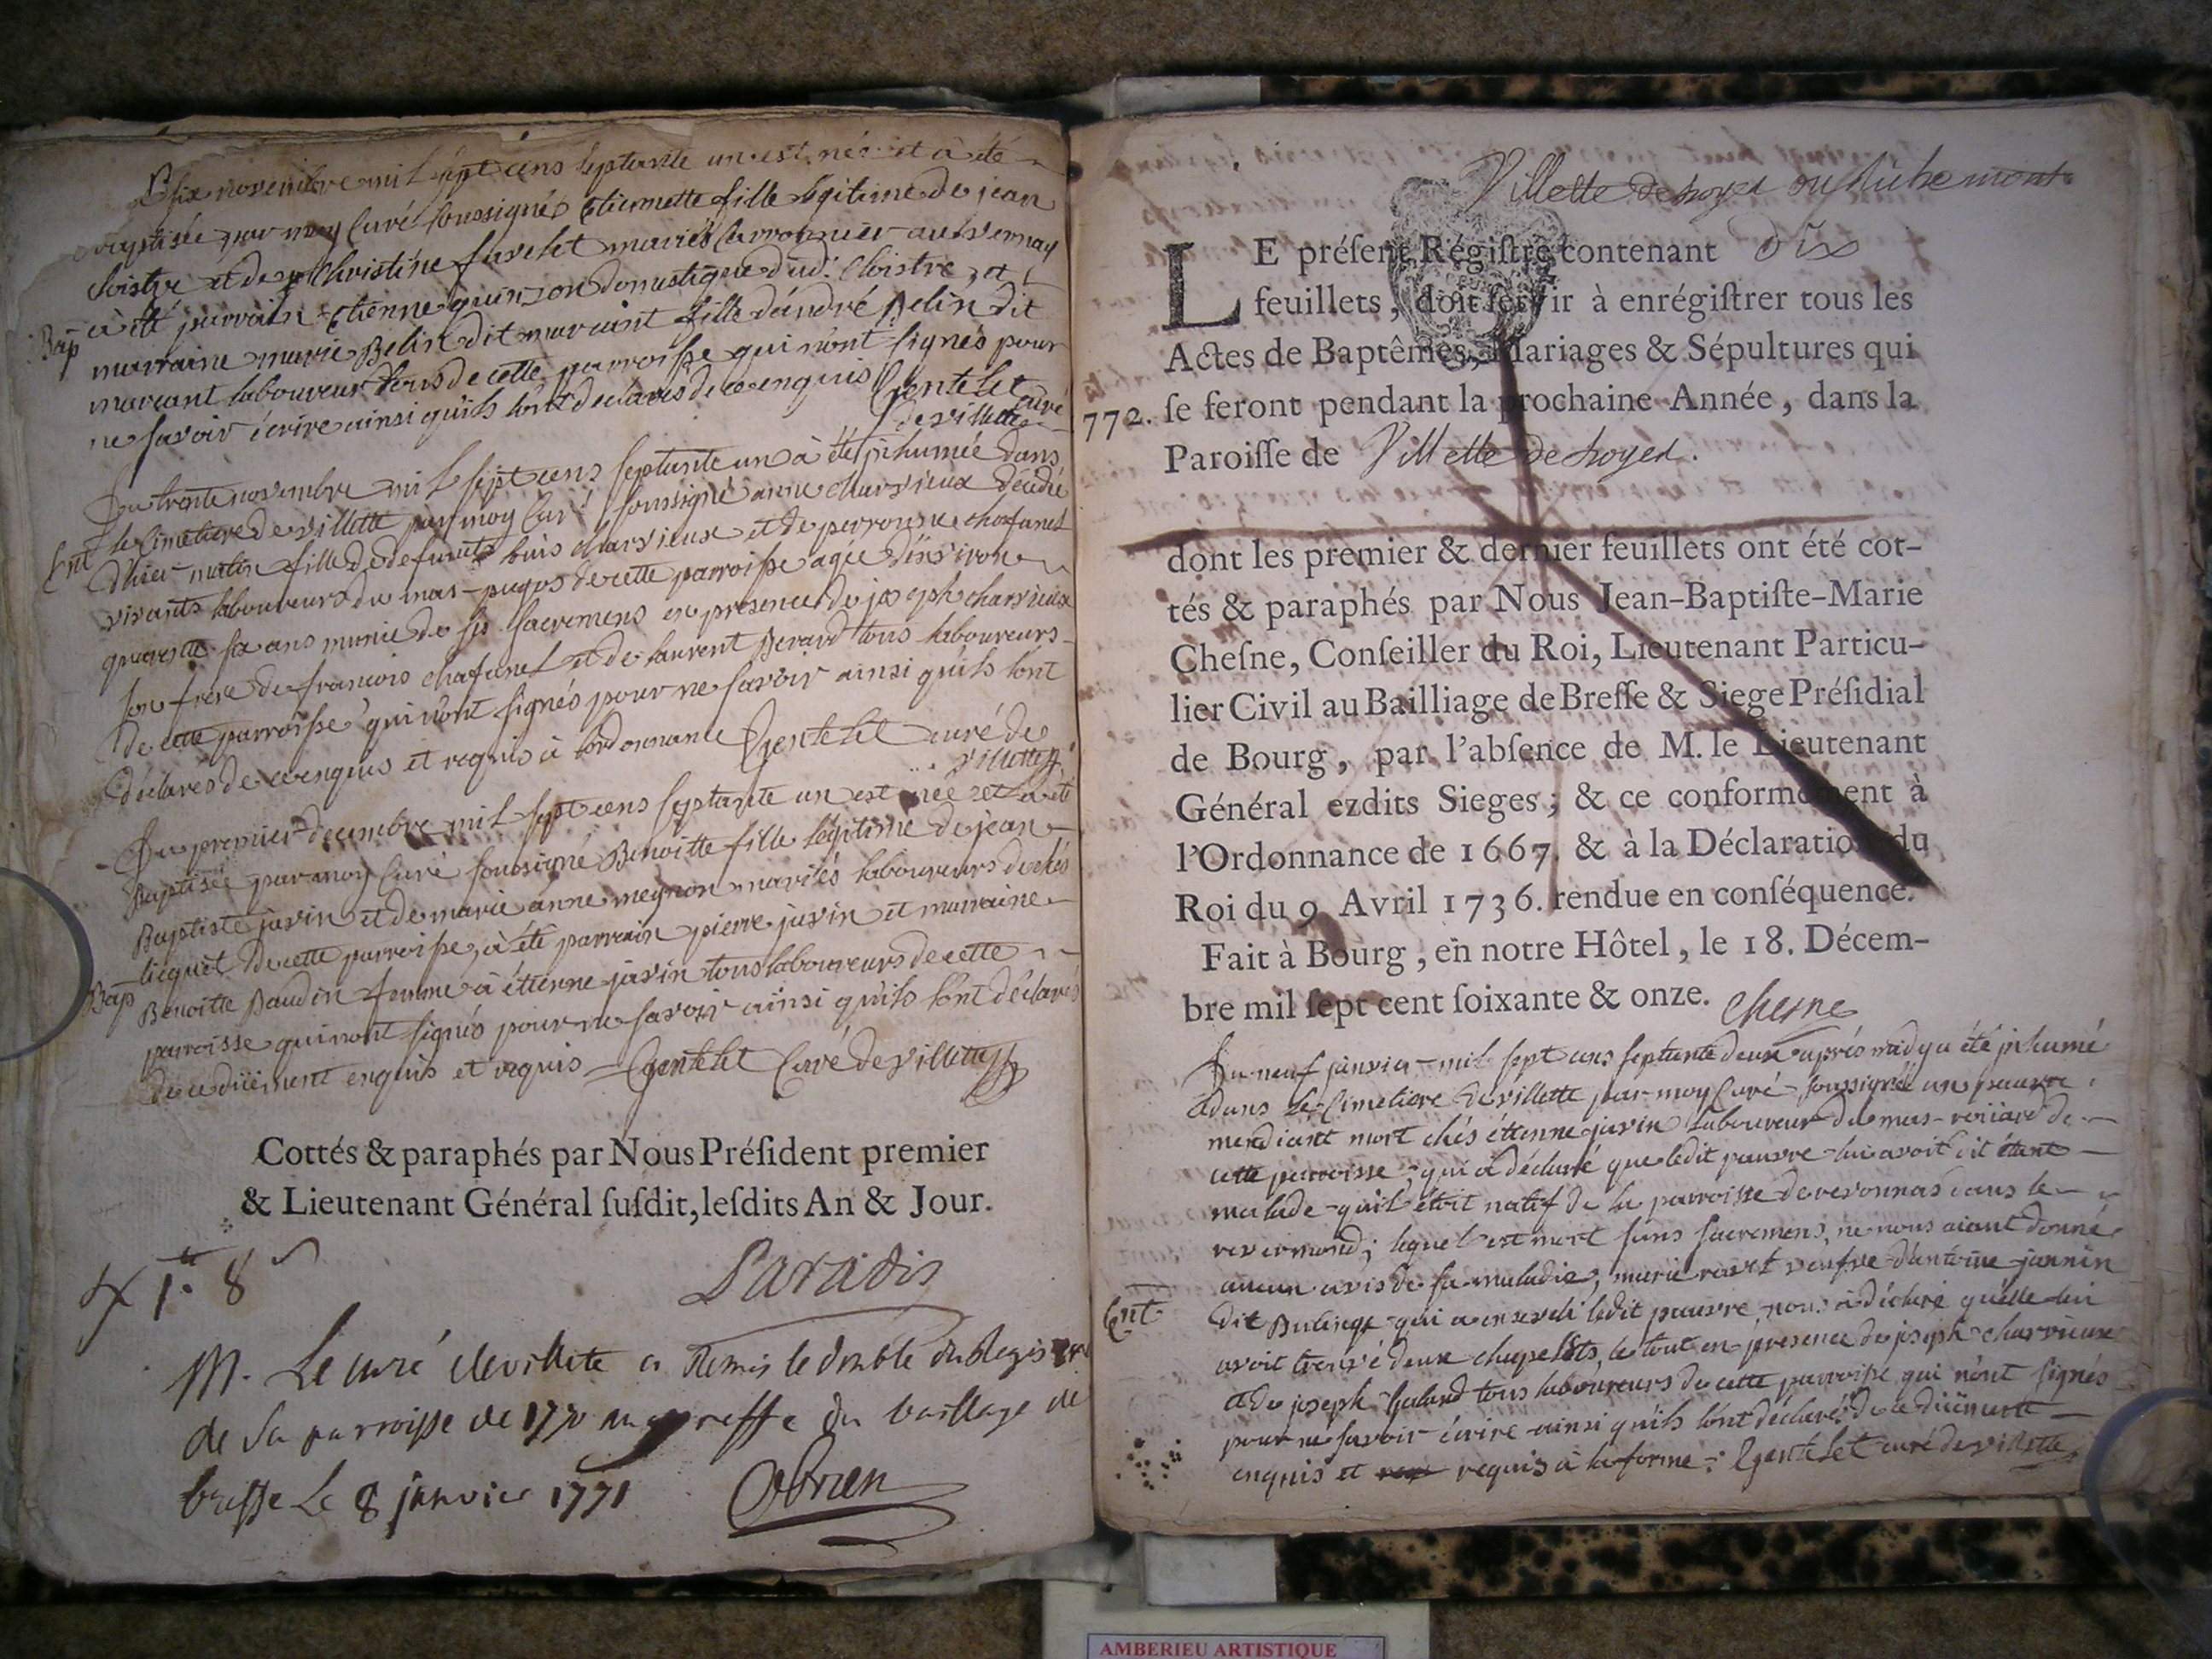 six novembre mil sept cens septante un est née et à été
baptisée par moy Curé soussigné Etiennette fille légitime de jean
Cloistre et de Christine favelet mariés
à été parrain Etienne domestique dud. Cloistre, et
Bap
marraine marie Belin dit marcant fille d'andré Belin dit
marcant laboureur tous de cette parroisse qui n'ont signés pour
ne savoir écrire ainsi qu'ils l'ont declarés de ce enquis Gentelet curé
de villette
Du trente novembre mil sept cens septante un à été inhumée dans
Ent
le Cimetiere de villette par moy Curé soussigné anne charvieux décédée
d'hier matin fille de defunts louis charvieux et de perronne chafanel
vivants laboureurs du mas-pugos de cette parroisse agée d'environ
quarente six ans munie de ses sacremens en presence de joseph charvieux
son frere de francois chafanel et de laurent Berard tous laboureurs
de cette parroisse qui n'ont signés pour ne savoir ainsi qu'ils l'ont
déclarés de ce enquis et requis à l'ordonnance Gentelet curé de
villette
Du premier decembre mil sept cens septante un est née et à été
Baptisée par moy Curé soussigné Benoitte fille légitime de jean
Baptiste javin et de marie anne meynon mariés laboureurs
de cette parroisse, à été parrain pierre javin et marraine
Bap
Benoitte Baudin femme à étienne javin tous laboureurs de cette
parroisse qui n'ont signés pour ne savoir ainsi qu'ils l'ont déclarés
de ce düement enquis et requis = Gentelet Curé de villette
Cottés & paraphés par Nous Préſident premier
& Lieutenant Général ſuſdit, leſdits An & Jour.
1. 8
Paradis
M. Le curé de villette a Remis le double du Registre
de sa parroisse de 1770 au greffe du bailliage de
bresse Le 8 janvier 1771 Obrien
Villette de loyes ou Richemont
LE préſent Régiſtre contenant dix
feuillets, doit ſervir à enrégiſtrer tous les
Actes de Baptêmes, Mariages & Sépultures qui
772. ſe feront pendant la prochaine Année, dans la
Paroiſſe de Villette de loyes.
dont les premier & dernier feuillets ont été cot-
tés & paraphés par Nous Jean-Baptiſte-Marie
Cheſne, Conſeiller du Roi, Lieutenant Particu-
lier Civil au Bailliage de Breſſe & Siege Préſidial
de Bourg, par l'abſence de M. le Lieutenant
Général ezdits Sieges; & ce conformément à
l'Ordonnance de 1667. & à la Déclaration du
Roi du 9 Avril 1736. rendue en conſéquence.
Fait à Bourg, en notre Hôtel, le 18. Décem-
bre mil ſept cent ſoixante & onze. Chesne
Du neuf janvier mil sept cens septante deux après midy a été inhumé
dans le Cimetiere de villette par moy Curé soussigné un pauvre
mendiant mort chés étienne javin laboureur du mas-roüard de
cette parroisse, qui a déclaré que ledit pauvre lui avoit dit étant
malade qu'il étoit natif de la parroisse de revonnas dans le
revermond; lequel est mort sans sacremens, ne nous aiant donné
aucun avis de sa maladie, marie ravet veufve d'antoine jannin
Ent
dit Bulinge qui a enseveli ledit pauvre nous a déclaré qu'elle lui
avoit trouvé deux chapelets, le tout en presence de joseph charvieux
et de joseph Galand tous laboureurs de cette parroisse qui n'ont signés
pour ne savoir écrire ainsi qu'ils l'ont déclaré de ce düement
enquis et requis à la forme = Gentelet curé de villette
AMBERIEU ARTISTIQUE